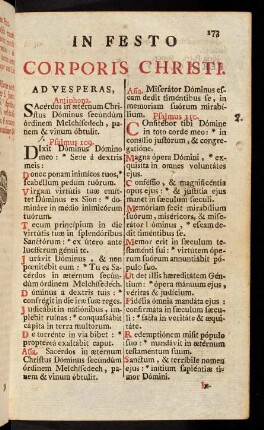 173
IN FESTO
CORPORIS CHRISTI.
AD VESPERAS,
Antiphona.
Sacerdos in ætérnum Christus Dóminus secundùm
órdinem Melchísedech, panem & vinum óbtulit.
Psalmus 109.
Dixit Dóminus Dómino
meo: * Sede à dextris
meis:
Donec ponam inimícos tuos, *
scabellum pedum tuórum.
Virgam virtútis tuæ emíttet Dóminus ex Sion: * domináre in médio inimicórum
tuórum.
Tecum princípium in die
virtútis tuæ in splendóribus
Sanctórum: * ex útero ante
lucíferum génui te.
Jurávit Dóminus, & non
pœnitébit eum: * Tu es Sacérdos in ætérnum secúndùm órdinem Melchísedech.
Dóminus à dextris tuis: *
confrégit in die iræ suæ reges.
Judicábit in natiónibus, implébit ruínas: * conquassábit
cápita in terra multórum.
De torrénte in via bibet: *
proptéreà exaltábit caput.
Aña. Sacérdos in ætérnum
Christus Dóminus secúndùm
órdinem Melchísedech, panem & vinum óbtulit.
Aña. Miserátor Dóminus escam dedit timéntibus se, in
memóriam suórum mirabílium.
Psalmus 110.
Confitébor tibi Dómine
in toto corde meo: * in
consílio justórum, & congregatióne.
Magna ópera Dómini, * exquisíta in omnes voluntátes
ejus.
Conféssio, & magnificéntia
opus ejus: * & justítia ejus
manet in sǽculum sǽculi.
Memóriam fecit mirabílium
suórum, miséricors, & miserátor Dóminus, * escam dedit timéntibus se.
Memor erit in sǽculum testaménti sui: * virtútem óperum suórum annuntiábit pópulo suo.
Ut det illis hæreditátem Géntium: * ópera mánuum ejus,
véritas & judícium.
Fidélia ómnia mandáta ejus:
confirmáta in sǽculum sǽculi: * facta in veritáte & æquitáte.
Redemptiónem misit pópulo
suo: * mandávit in ætérnum
testaméntum suum.
Sanctum, & terríbile nomen
ejus: * inítium sapiéntiæ timor Dómini.